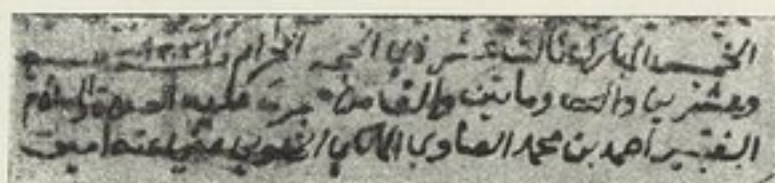 الخميس المبارك ثالث عشر ذي الحجه الحرام
وعشرين وماتين والف من عليه الصلاة والسلام
الفقير احمد بن محمد الصاوي المالكي الخلوتي عفي عنه امين